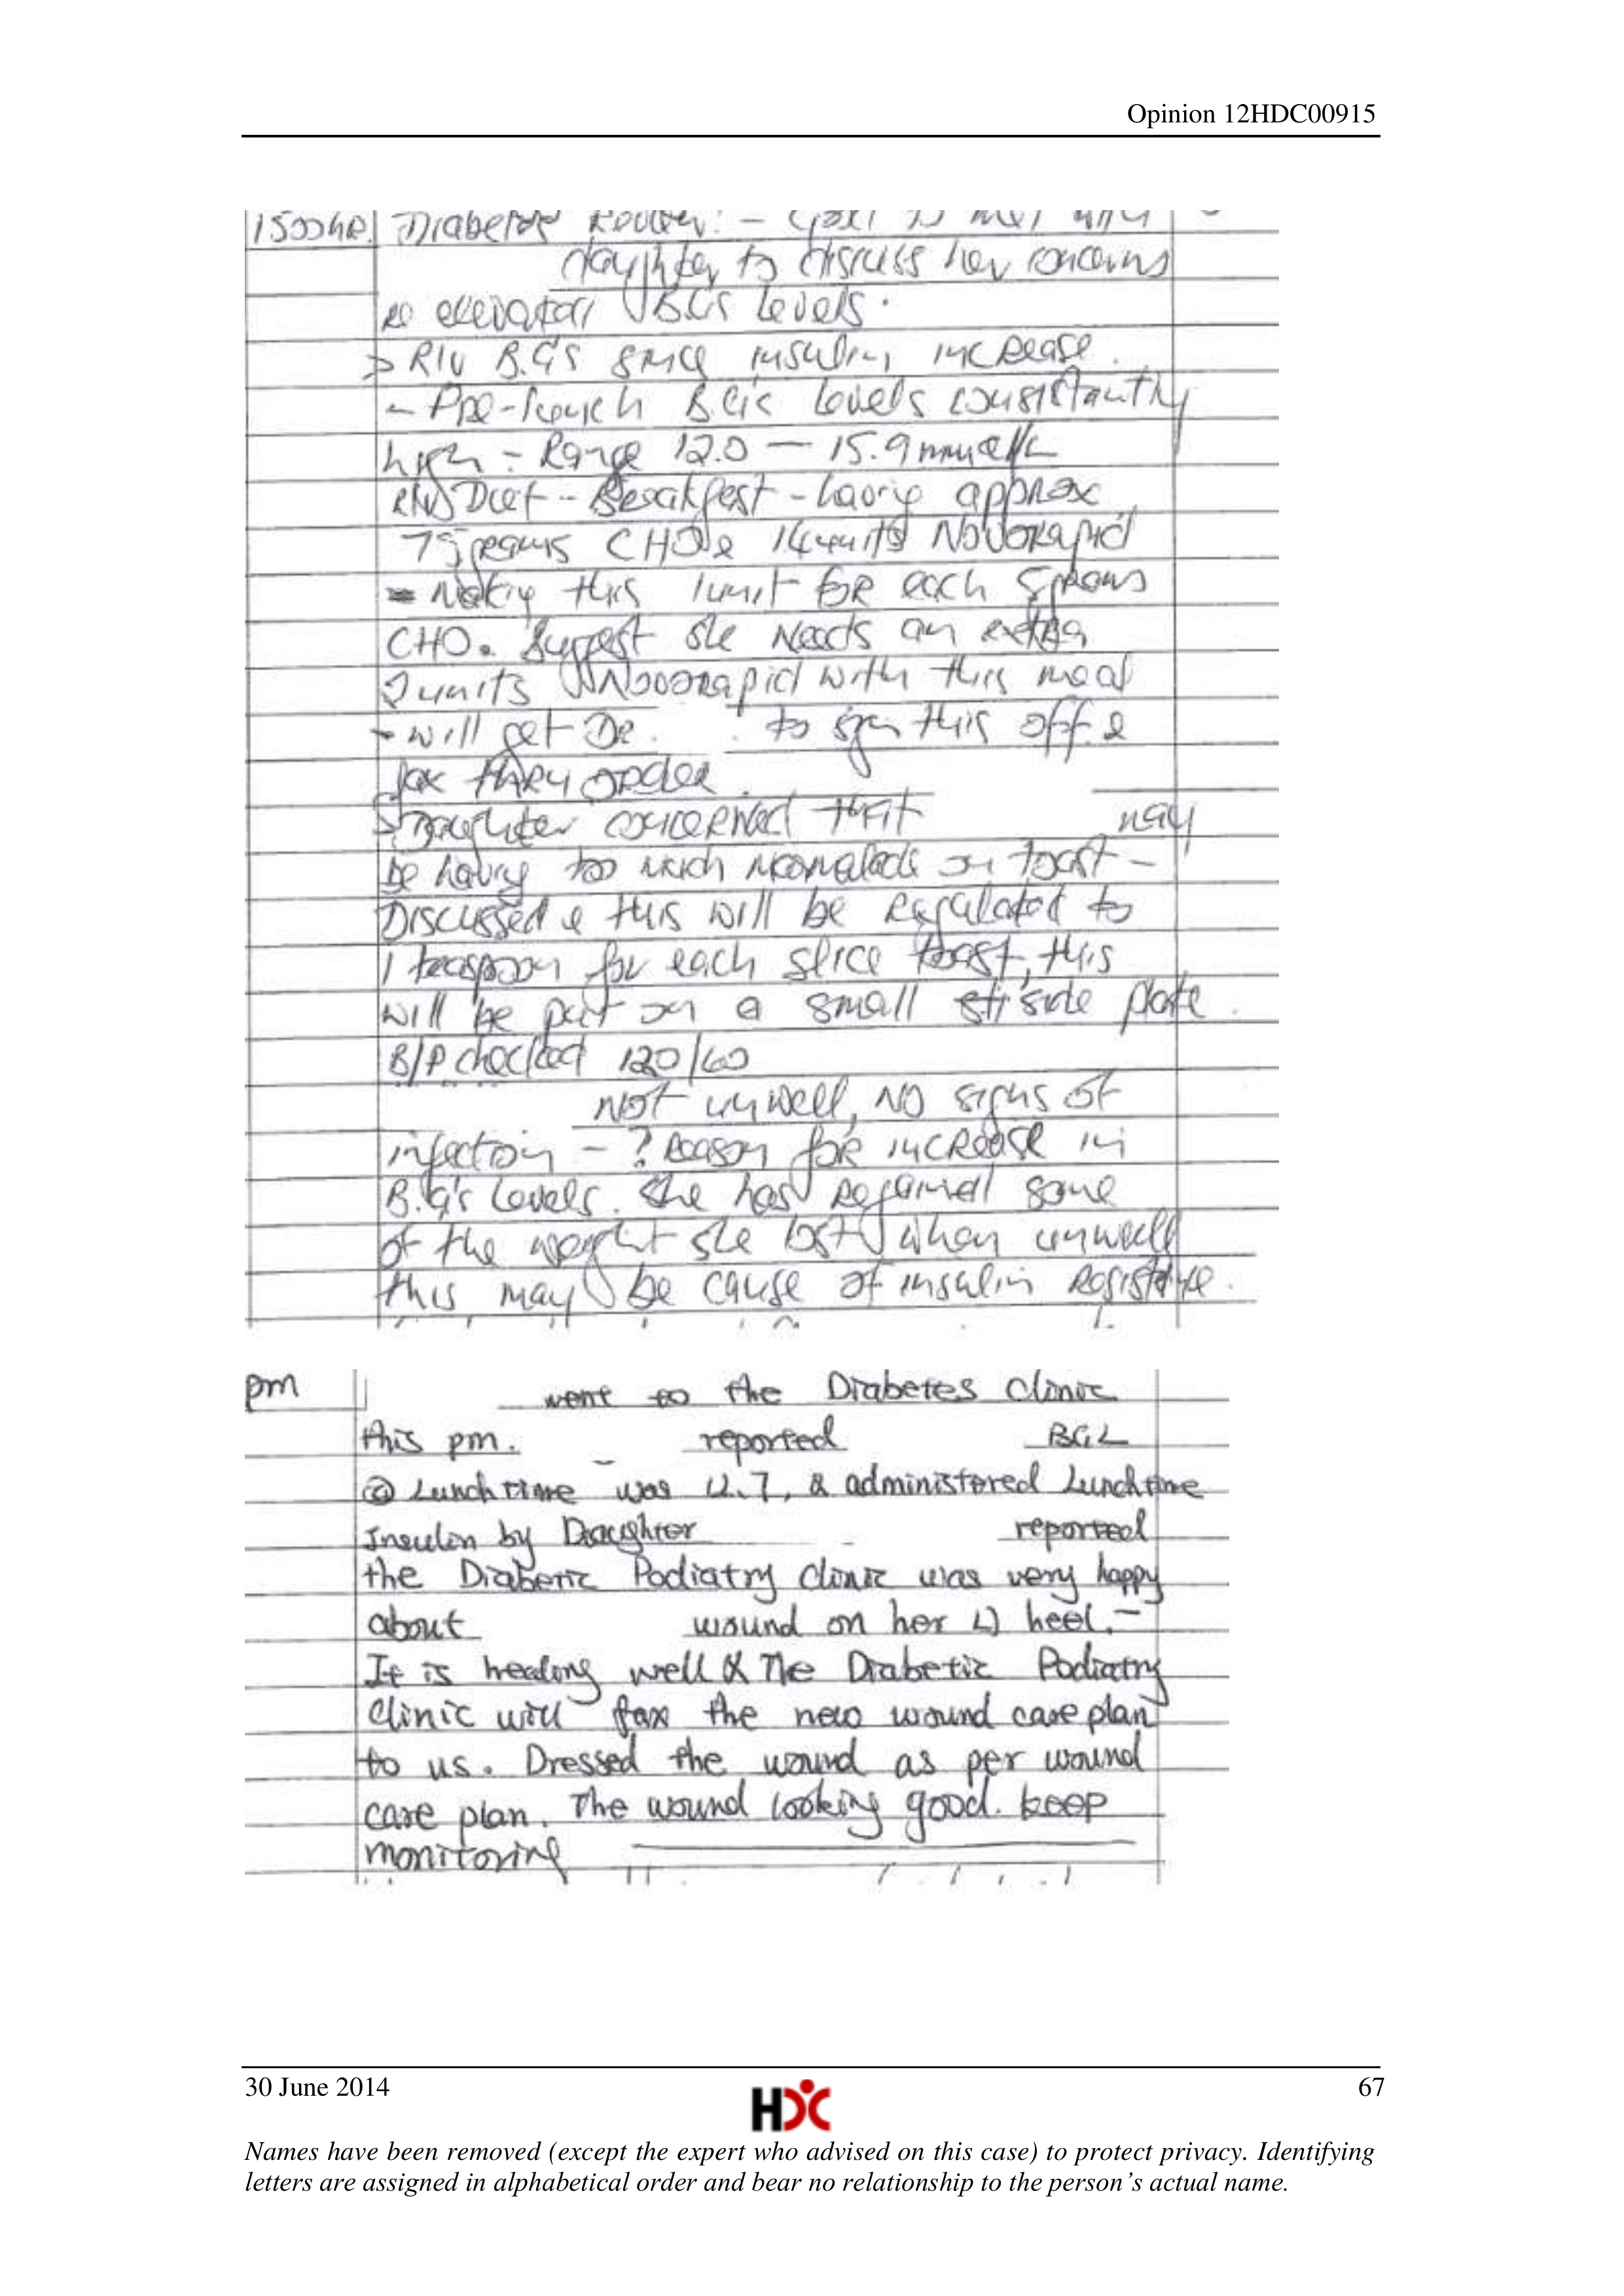 Opinion 12HDC00915
1500HR. Diabetes Review: -
daughter to discuss her concerns
re elevated BG's levels.
> R/V B.G's since insulin increase.
- Pre-lunch B.G's levels consistantly
high - Range 12.0 — 15.9 mmol/L
R/V Diet - Breakfast - having approx
75 grams CHO & 14 units Novorapid
= Making this 1 unit for each 5 grams
CHO. Suggest she needs an extra
2 units Novorapid with this meal
- will get Dr. to sign this off &
fax thru order.
> Daughter concerned that may
be having too much marmalade on toast -
Discussed & this will be regulated to
1 teaspoon for each slice toast, this
will be put on a small side plate.
B/P checked 120/60
Not unwell, NO signs of
infection - ? Reason for increase in
B.G's levels. She has regained some
of the weight she lost when unwell
this may be cause of insulin resistance.
pm went to the Diabetes Clinic
this pm. reported BGL
@ Lunchtime was 12.7, & administered Lunchtime
Insulin by Daughter reported
the Diabetic Podiatry Clinic was very happy
about wound on her L) heel. -
It is healing well & The Diabetic Podiatry
Clinic will fax the new wound care plan
to us. Dressed the wound as per wound
care plan. The wound looking good. keep
monitoring
30 June 2014
HDC
67
Names have been removed (except the expert who advised on this case) to protect privacy. Identifying
letters are assigned in alphabetical order and bear no relationship to the person's actual name.